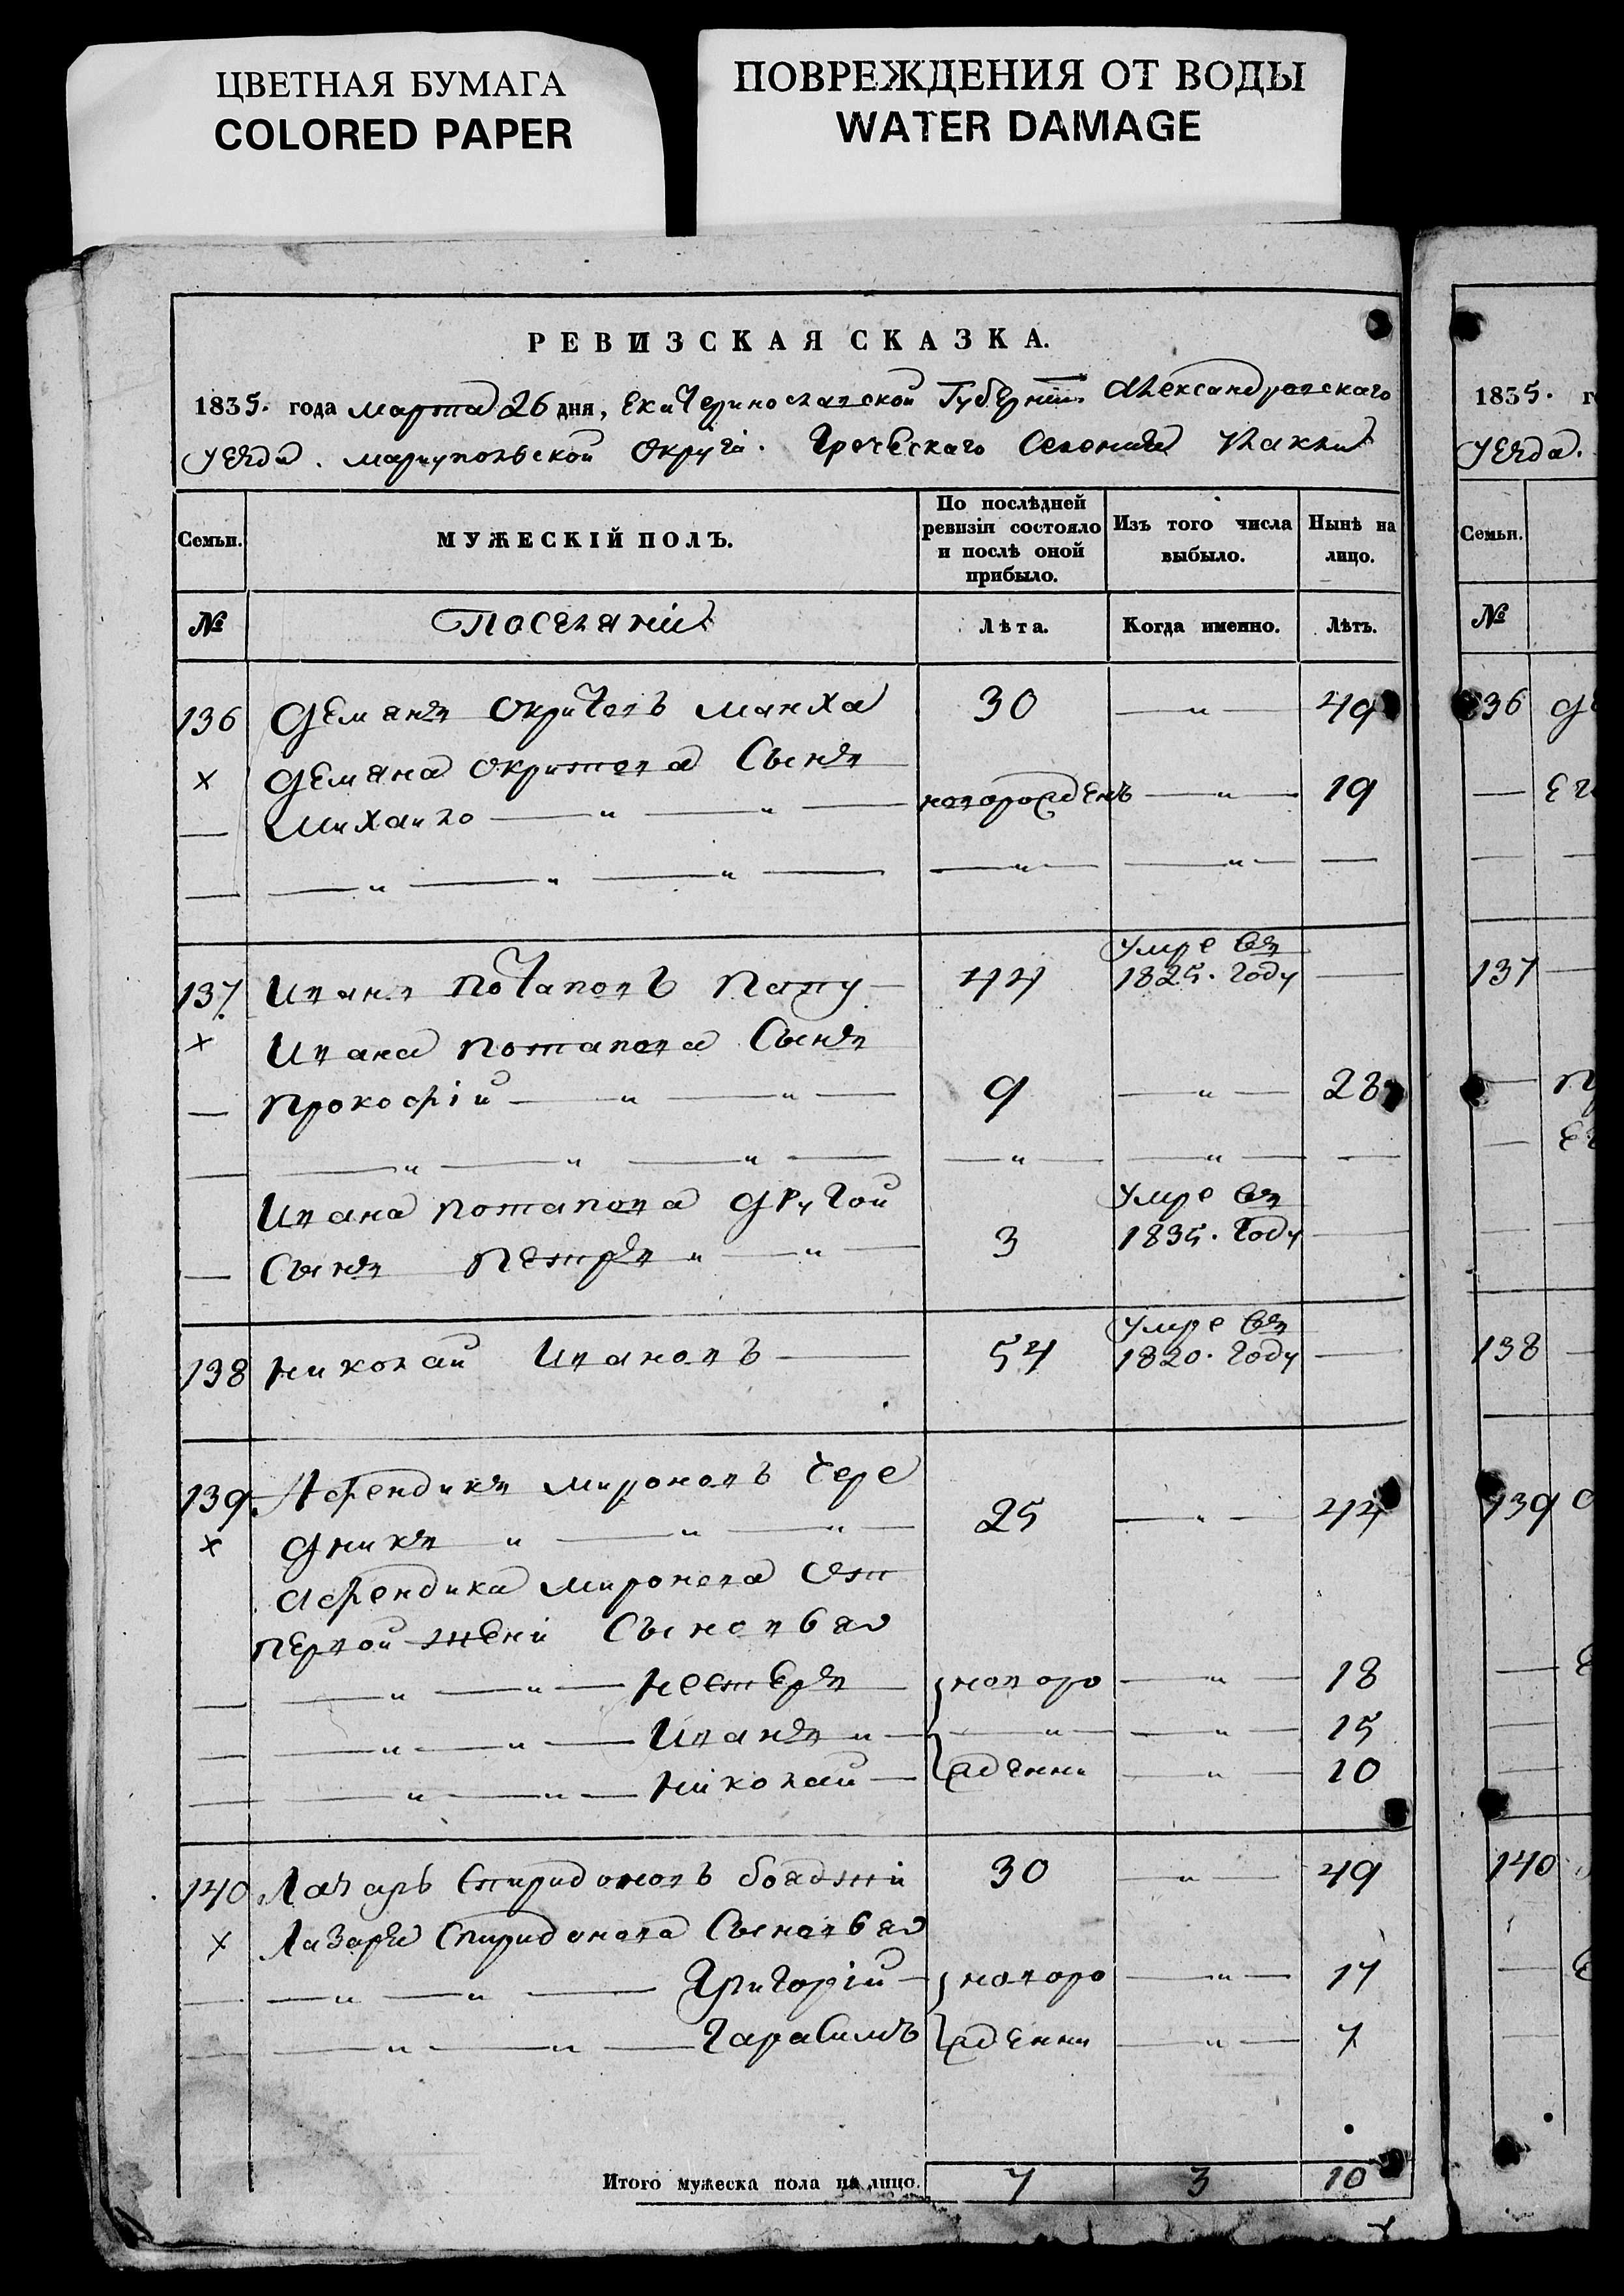 ЦВЕТНАЯ БУМАГА
COLORED PAPER
ПОВРЕЖДЕНИЯ ОТ ВОДЫ
WATER DAMAGE
РЕВИЗСКАЯ СКАЗКА.
1835. года марта 26 дня, Екатеринославской Губерніи Александровскаго
уезда. мариупольской округи. Греческаго Селения
Семьи. МУЖЕСКІЙ ПОЛЪ. По послѣдней ревизіи состояло и послѣ оной прибыло. Изъ того числа выбыло. Нынѣ на лицо.
№ Поселяніи Лѣта. Когда именно. Лѣтъ.
136 Деманъ Окритовъ манха 30 — „ — 49
× Демана окритова Сынъ
— Михаило — „ — „ — новорожденъ — „ — 19
— — „ — „ — „ — — „ — — „ — —
умре въ
137. Иванъ Потаповъ Папу — 44 1825. году —
× Ивана потапова Сынъ
— прокофій — „ — „ — 9 — „ — 28
— — „ — „ — „ — — „ — — „ — —
Ивана потапова другой умре въ
— Сынъ петръ „ — „ — 3 1835. году —
умре въ
138 николай Ивановъ — 54 1820. году —
139. Афендикъ мироновъ Чере
× дникъ „ — „ — „ — 25 — „ — 44
афендика миронова от
первой жени Сыновья
— — „ — „ — нестеръ — новоро — „ — 18
— — „ — „ — Иванъ „ — — „ — — „ — 15
— — „ — „ — николай — ждении — „ — 10
140 Лазарь спиридоновъ бояджи 30 — „ — 49
× Лазаря Спиридонова Сыновья
— — „ — „ — Григорій — новоро — „ — 17
— — „ — „ — Гарасимъ ждении — „ — 7
Итого мужеска пола на лицо. 7 3 10
1835. г
уезда.
Семьи.
№
136 Де
— Ег
— —
137 —
— П
— Е
— —
138 —
139
—
—
—
140
—
—